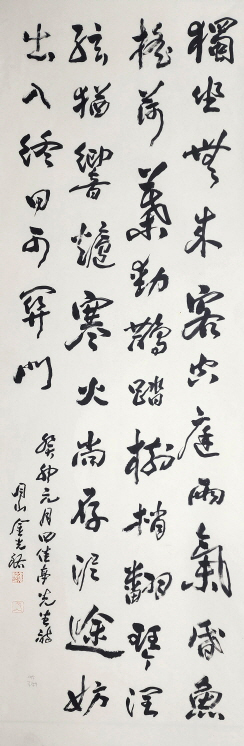 獨坐無來客空庭雨氣昏魚
搖荷葉動鵲踏樹梢翻琴潤
絃猶響爐寒火尚存泥途妨
出入終日可關門
癸卯元月四佳亭先生詩
月山金光